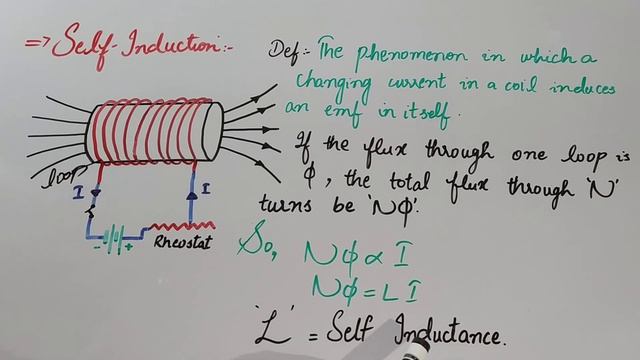 => Self-Induction:-
Def:- The phenomenon in which a
changing current in a coil induces
an emf in itself.
If the flux through one loop is
ϕ, the total flux through 'N'
turns be 'Nϕ'.
loop
I
I
- +
Rheostat
So, Nϕ ∝ I
Nϕ = L I
'L' = Self Inductance.